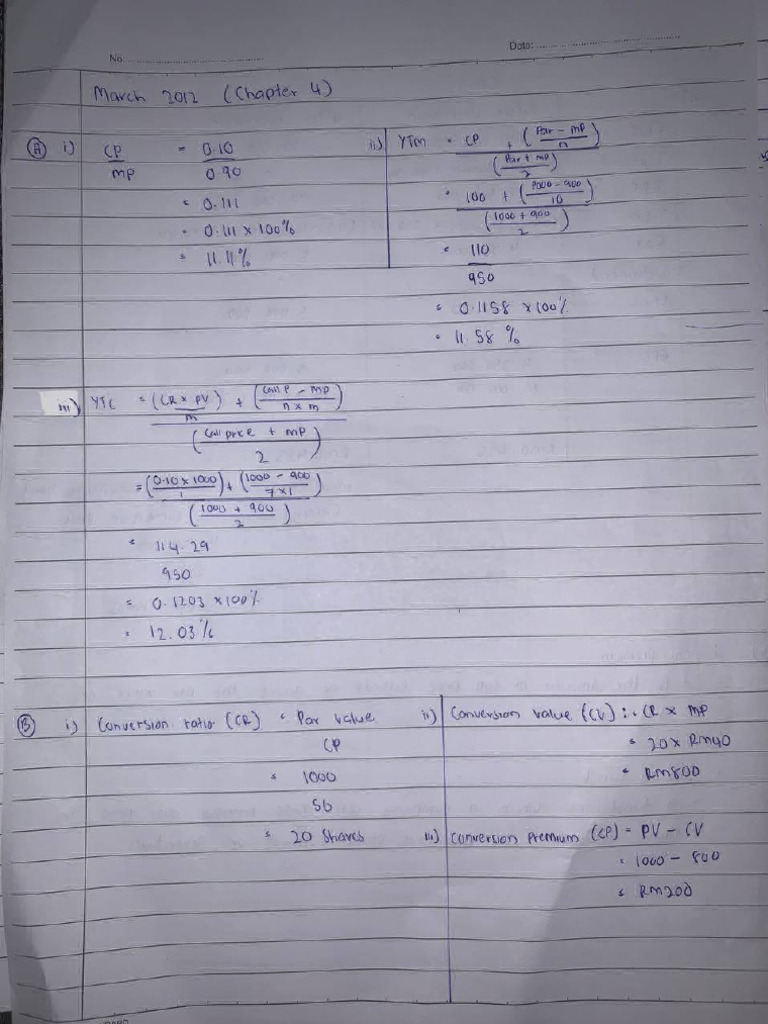 No.
Date:
March 2012 (Chapter 4)
(A) i) CP = 0.10
MP 0.90
= 0.111
= 0.111 x 100%
= 11.11%
ii) YTM = CP + (Par - MP)
n
(Par + MP)
2
= 100 + (1000 - 900)
10
(1000 + 900)
2
= 110
950
= 0.1158 x 100%
= 11.58 %
iii) YTC = (CR x PV) + (Call P - MP)
m n x m
(Call price + MP)
2
= (0.10 x 1000) + (1000 - 900)
1 7 x 1
(1000 + 900)
2
= 114.29
950
= 0.1203 x 100%
= 12.03%
(B) i) Conversion ratio (CR) = Par value
CP
= 1000
50
= 20 shares
ii) Conversion value (CV) : = CR x MP
= 20 x RM40
= RM800
iii) Conversion Premium (CP) = PV - CV
= 1000 - 800
= RM200